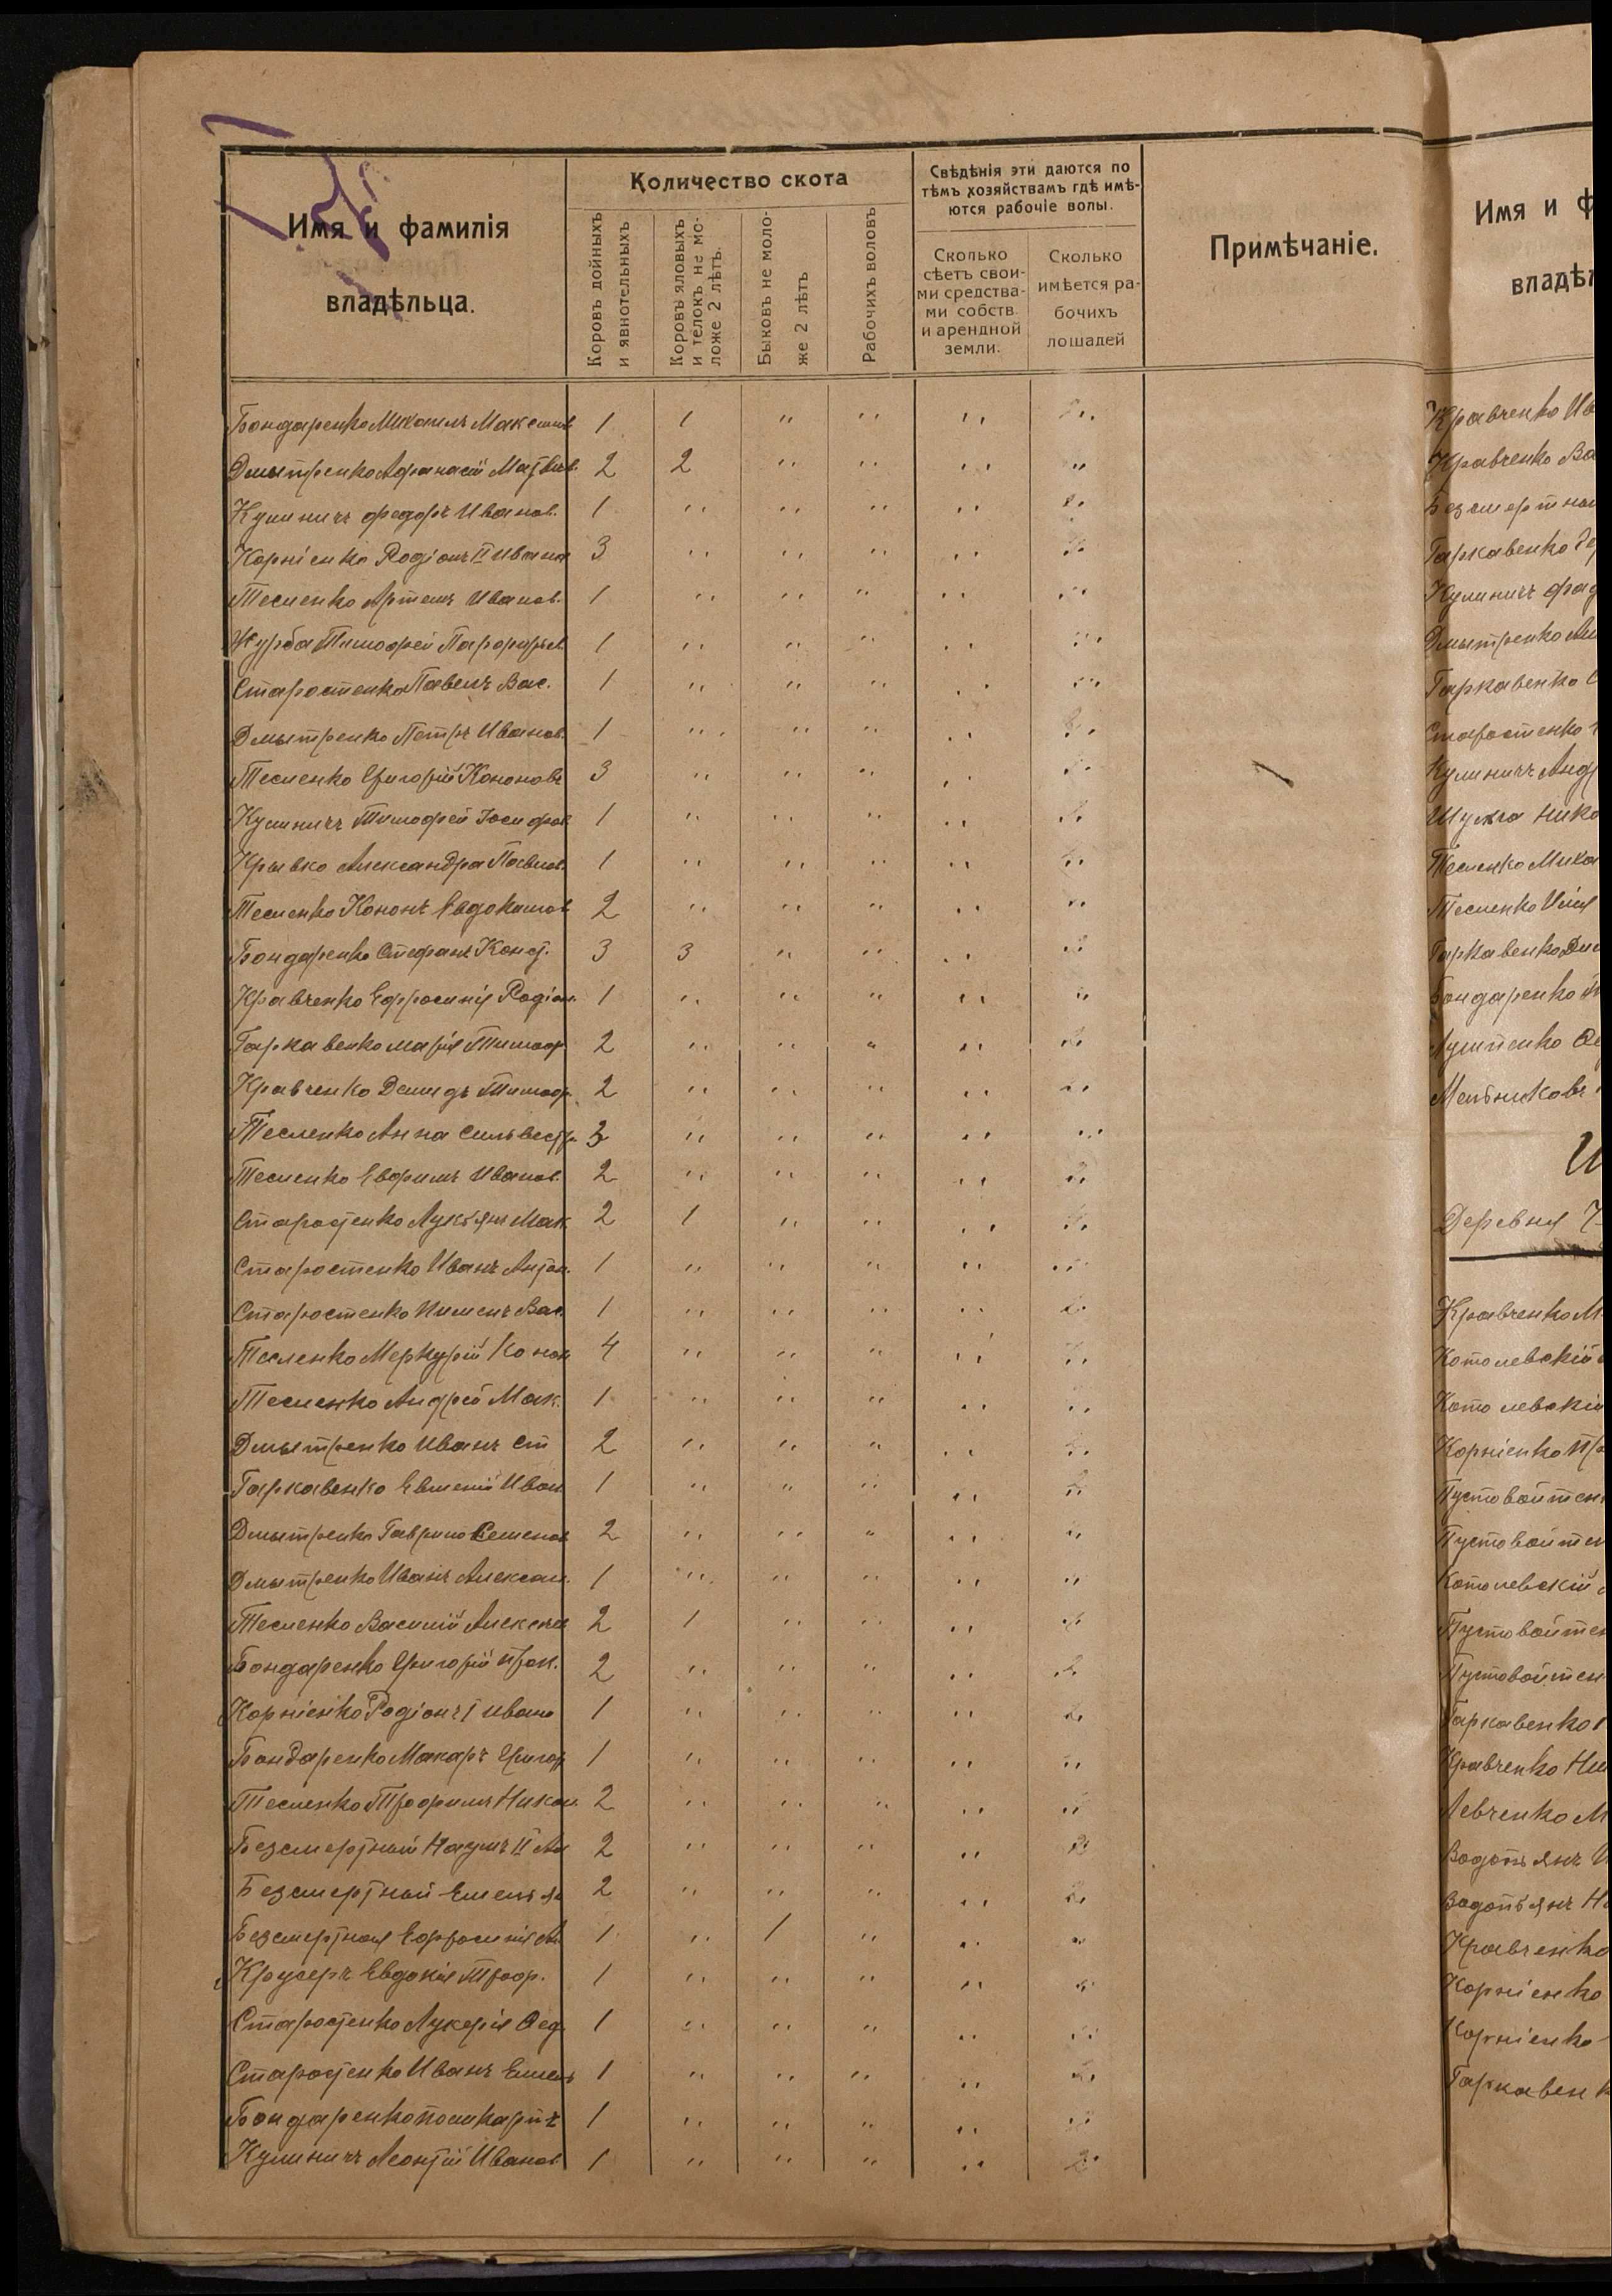 Имя и фамилія
владѣльца.
Количество скота
Коровъ дойныхъ
и явнотельныхъ
Коровъ яловыхъ
и телокъ не мо-
ложе 2 лѣтъ.
Быковъ не моло-
же 2 лѣтъ
Рабочихъ воловъ
Свѣдѣнія эти даются по
тѣмъ хозяйствамъ гдѣ имѣ-
ются рабочіе волы.
Сколько
сѣетъ свои-
ми средства-
ми собств.
и арендной
земли.
Сколько
имѣется ра-
бочихъ
лошадей
Примѣчаніе.
Бондаренко Михаилъ Максимов 1 1 " " " "
Дмытренко Афанасій Матвѣев. 2 2 " " " "
Кулиничъ Федоръ Иванов. 1 " " " " "
Корніенко Родіонъ II Иванов 3 " " " " "
Тесленко Артемъ Иванов. 1 " " " " "
Журба Тимофей Парфирьев. 1 " " " " "
Старостенко Павелъ Вас. 1 " " " " "
Дмытренко Петръ Иванов. 1 " " " " "
Тесленко Григорій Кононовъ 3 " " " " "
Кулиничъ Тимофей Іосифов. 1 " " " " "
Крывко Александра Павлов. 1 " " " " "
Тесленко Кононъ Евдокимов 2 " " " " "
Бондаренко Стефанъ Конст. 3 3 " " " "
Кравченко Ефросинія Родіон. 1 " " " " "
Гаркавенко Марія Тимоф. 2 " " " " "
Кравченко Демидъ Тимоф. 2 " " " " "
Тесленко Анна Сильвестр. 3 " " " " "
Тесленко Евфимъ Иванов. 2 " " " " "
Старостенко Лукьянъ Мак. 2 1 " " " "
Старостенко Иванъ Антон. 1 " " " " "
Старостенко Пименъ Вас. 1 " " " " "
Тесленко Меркурій Конон 4 " " " " "
Тесленко Андрей Мак. 1 " " " " "
Дмытренко Иванъ Ст 2 " " " " "
Гаркавенко Евмений Иван 1 " " " " "
Дмытренко Гаврило Семенов 2 " " " " "
Дмытренко Иванъ Алексан. 1 " " " " "
Тесленко Василій Алексѣев 2 1 " " " "
Бондаренко Григорій Прок. 2 " " " " "
Корніенко Родіонъ I Ивано 1 " " " " "
Бондаренко Макаръ Григор 1 " " " " "
Тесленко Трофимъ Никол. 2 " " " " "
Безсмертный Наумъ II Ан 2 " " " " "
Безсмертный Емельян 2 " " " " "
Безсмертная Ефросинія Ан 1 " 1 " " "
Крусеръ Евдокія Троф. 1 " " " " "
Старостенко Лукерія Фед 1 " " " " "
Старостенко Иванъ Емель 1 " " " " "
Бондаренко Поликарпъ 1 " " " " "
Кулиничъ Леонтій Иванов 1 " " " " "
Имя и ф
владѣл
Кравченко Ив
Кравченко Ва
Безсмертны
Гаркавенко
Кулиничъ Фад
Дмытренко
Гаркавенко С
Старостенко
Кулиничъ Андр
Шульга Нико
Тесленко Миха
Тесленко Илія
Гаркавенко Дми
Бондаренко
Мельниковъ
И
Деревня
Кравченко М
Котолевскій
Котолевскій
Корніенко Пр
Пустовойтен
Пустовойтен
Котолевскій
Пустовойтен
Пустовойтен
Гаркавенко
Кравченко Ни
Левченко М
Водопьянъ И
Водопьянъ Н
Кравченко
Корніенко
Корніенко
Гаркавенк